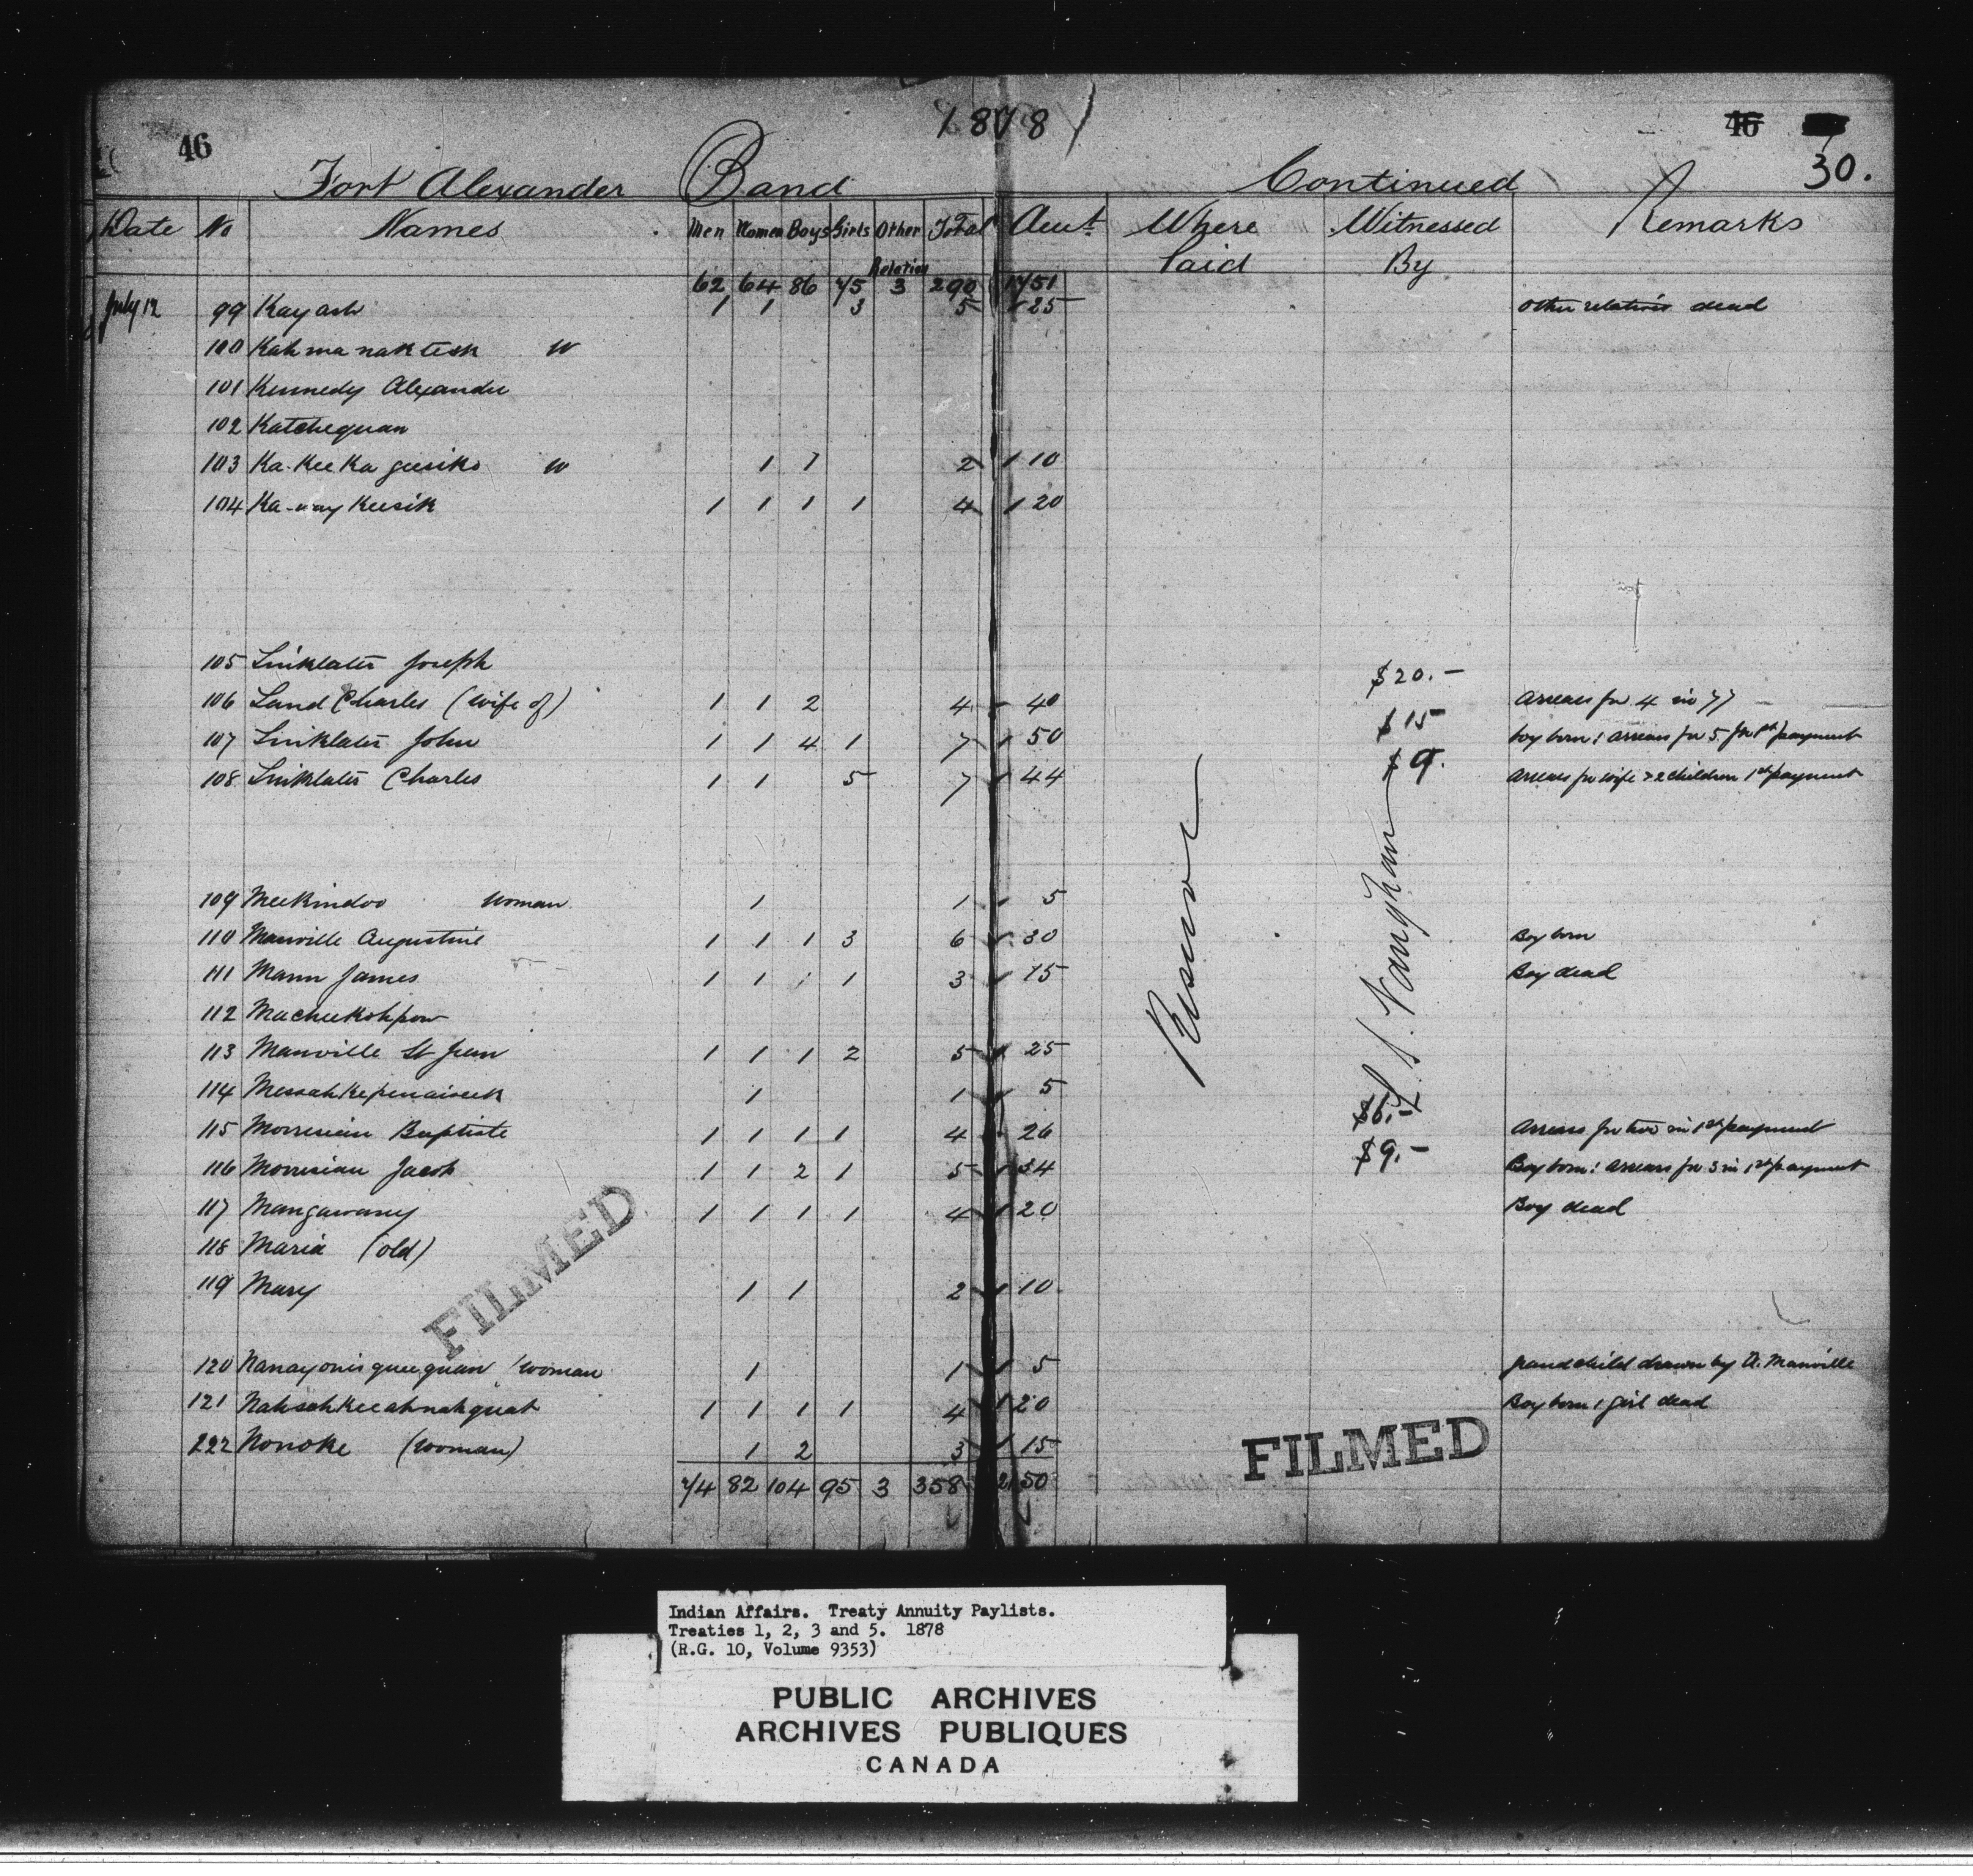 1878
46 46 30.
Fort Alexander Band Continued
Date No Names Men Women Boys Girls Other Relation Total Amt. Where Paid Witnessed By Remarks
62 64 86 75 3 290 1751
July 12 99 Kayash 1 1 3 5 25 Other relatives dead
100 Kahmanaktesk W
101 Kennedy Alexander
102 Katchequan
103 Ka-Kee Ka geesiko W 1 1 2 10
104 Ka-way Keesik 1 1 1 1 4 20
105 Linklater Joseph
$20.-
106 Land Charles (wife of) 1 1 2 4 40 Arrears for 4 in 77
$15
107 Linklater John 1 1 4 1 7 50 boy born: arrears for 5 for 1st payment
$9.
108 Linklater Charles 1 1 5 7 44 Arrears for wife & 2 children 1st payment
109 Meekindoo Woman 1 1 5
110 Manville Augustine 1 1 1 3 6 30 Boy born
111 Mann James 1 1 1 3 15 Boy dead
112 Macheekohpow
113 Manville St Jean 1 1 1 2 5 25
Reserve
114 Messahkepenaiseek 1 1 5
$6.-
115 Morrisian Baptiste 1 1 1 1 4 26 Arrears for two in 1st payment
$9.-
116 Morrisian Jacob 1 1 2 1 5 34 Boy born: arrears for 3 in 1st payment
117 Mangawasey 1 1 1 1 4 20 Boy dead
118 Maria (old)
119 Mary 1 1 2 10
FILMED
120 Nanayonisqueequan woman 1 1 5 grandchild drawn by A. Manville
121 Nahsahkeeahnahquat 1 1 1 1 4 20 Boy born 1 girl dead
222 Nonoke (woman) 1 2 3 15
FILMED
74 82 104 95 3 358 2150
Indian Affairs. Treaty Annuity Paylists.
Treaties 1, 2, 3 and 5. 1878
(R.G. 10, Volume 9353)
PUBLIC ARCHIVES
ARCHIVES PUBLIQUES
CANADA